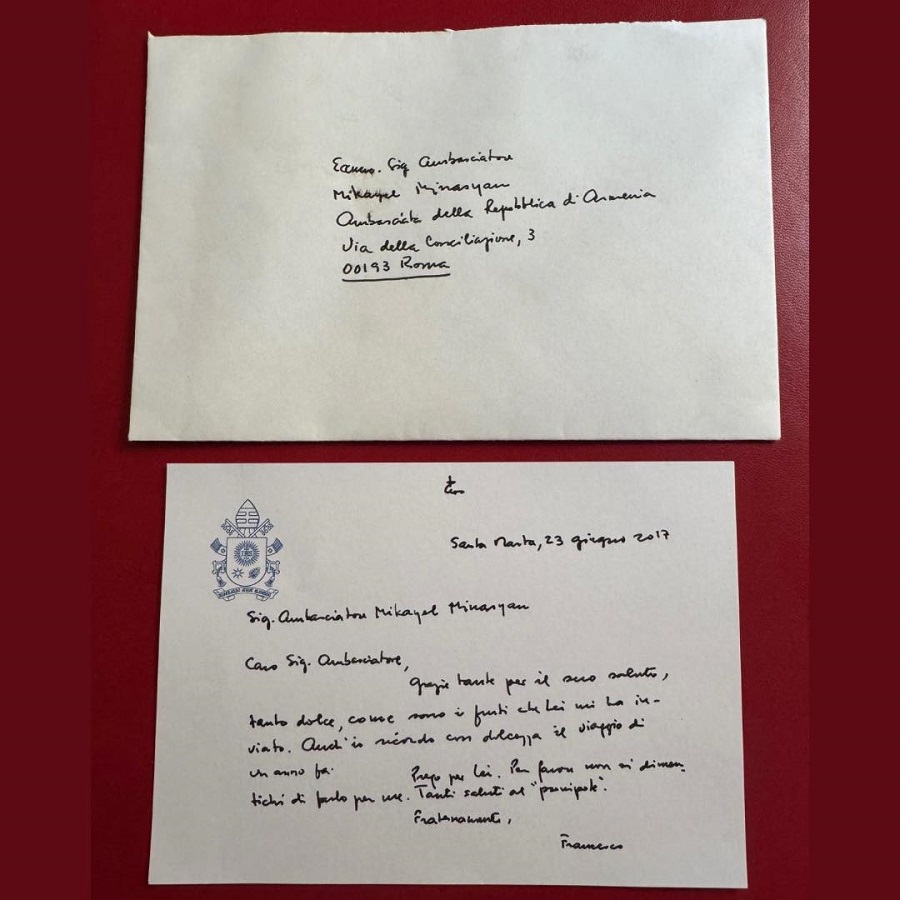 Eccmo. Sig Ambasciatore
Mikayel Minasyan
Ambasciata della Repubblica di Armenia
Via della Conciliazione, 3
00193 Roma
Santa Marta, 23 giugno 2017
Sig. Ambasciatore Mikayel Minasyan
Caro Sig. Ambasciatore,
grazie tante per il suo saluto,
tanto dolce, come sono i frutti che Lei mi ha in-
viato. Anch'io ricordo con dolcezza il viaggio di
un anno fa.
Prego per Lei. Per favore non si dimen-
tichi di farlo per me. Tanti saluti al "principote".
Fraternamente,
Francesco